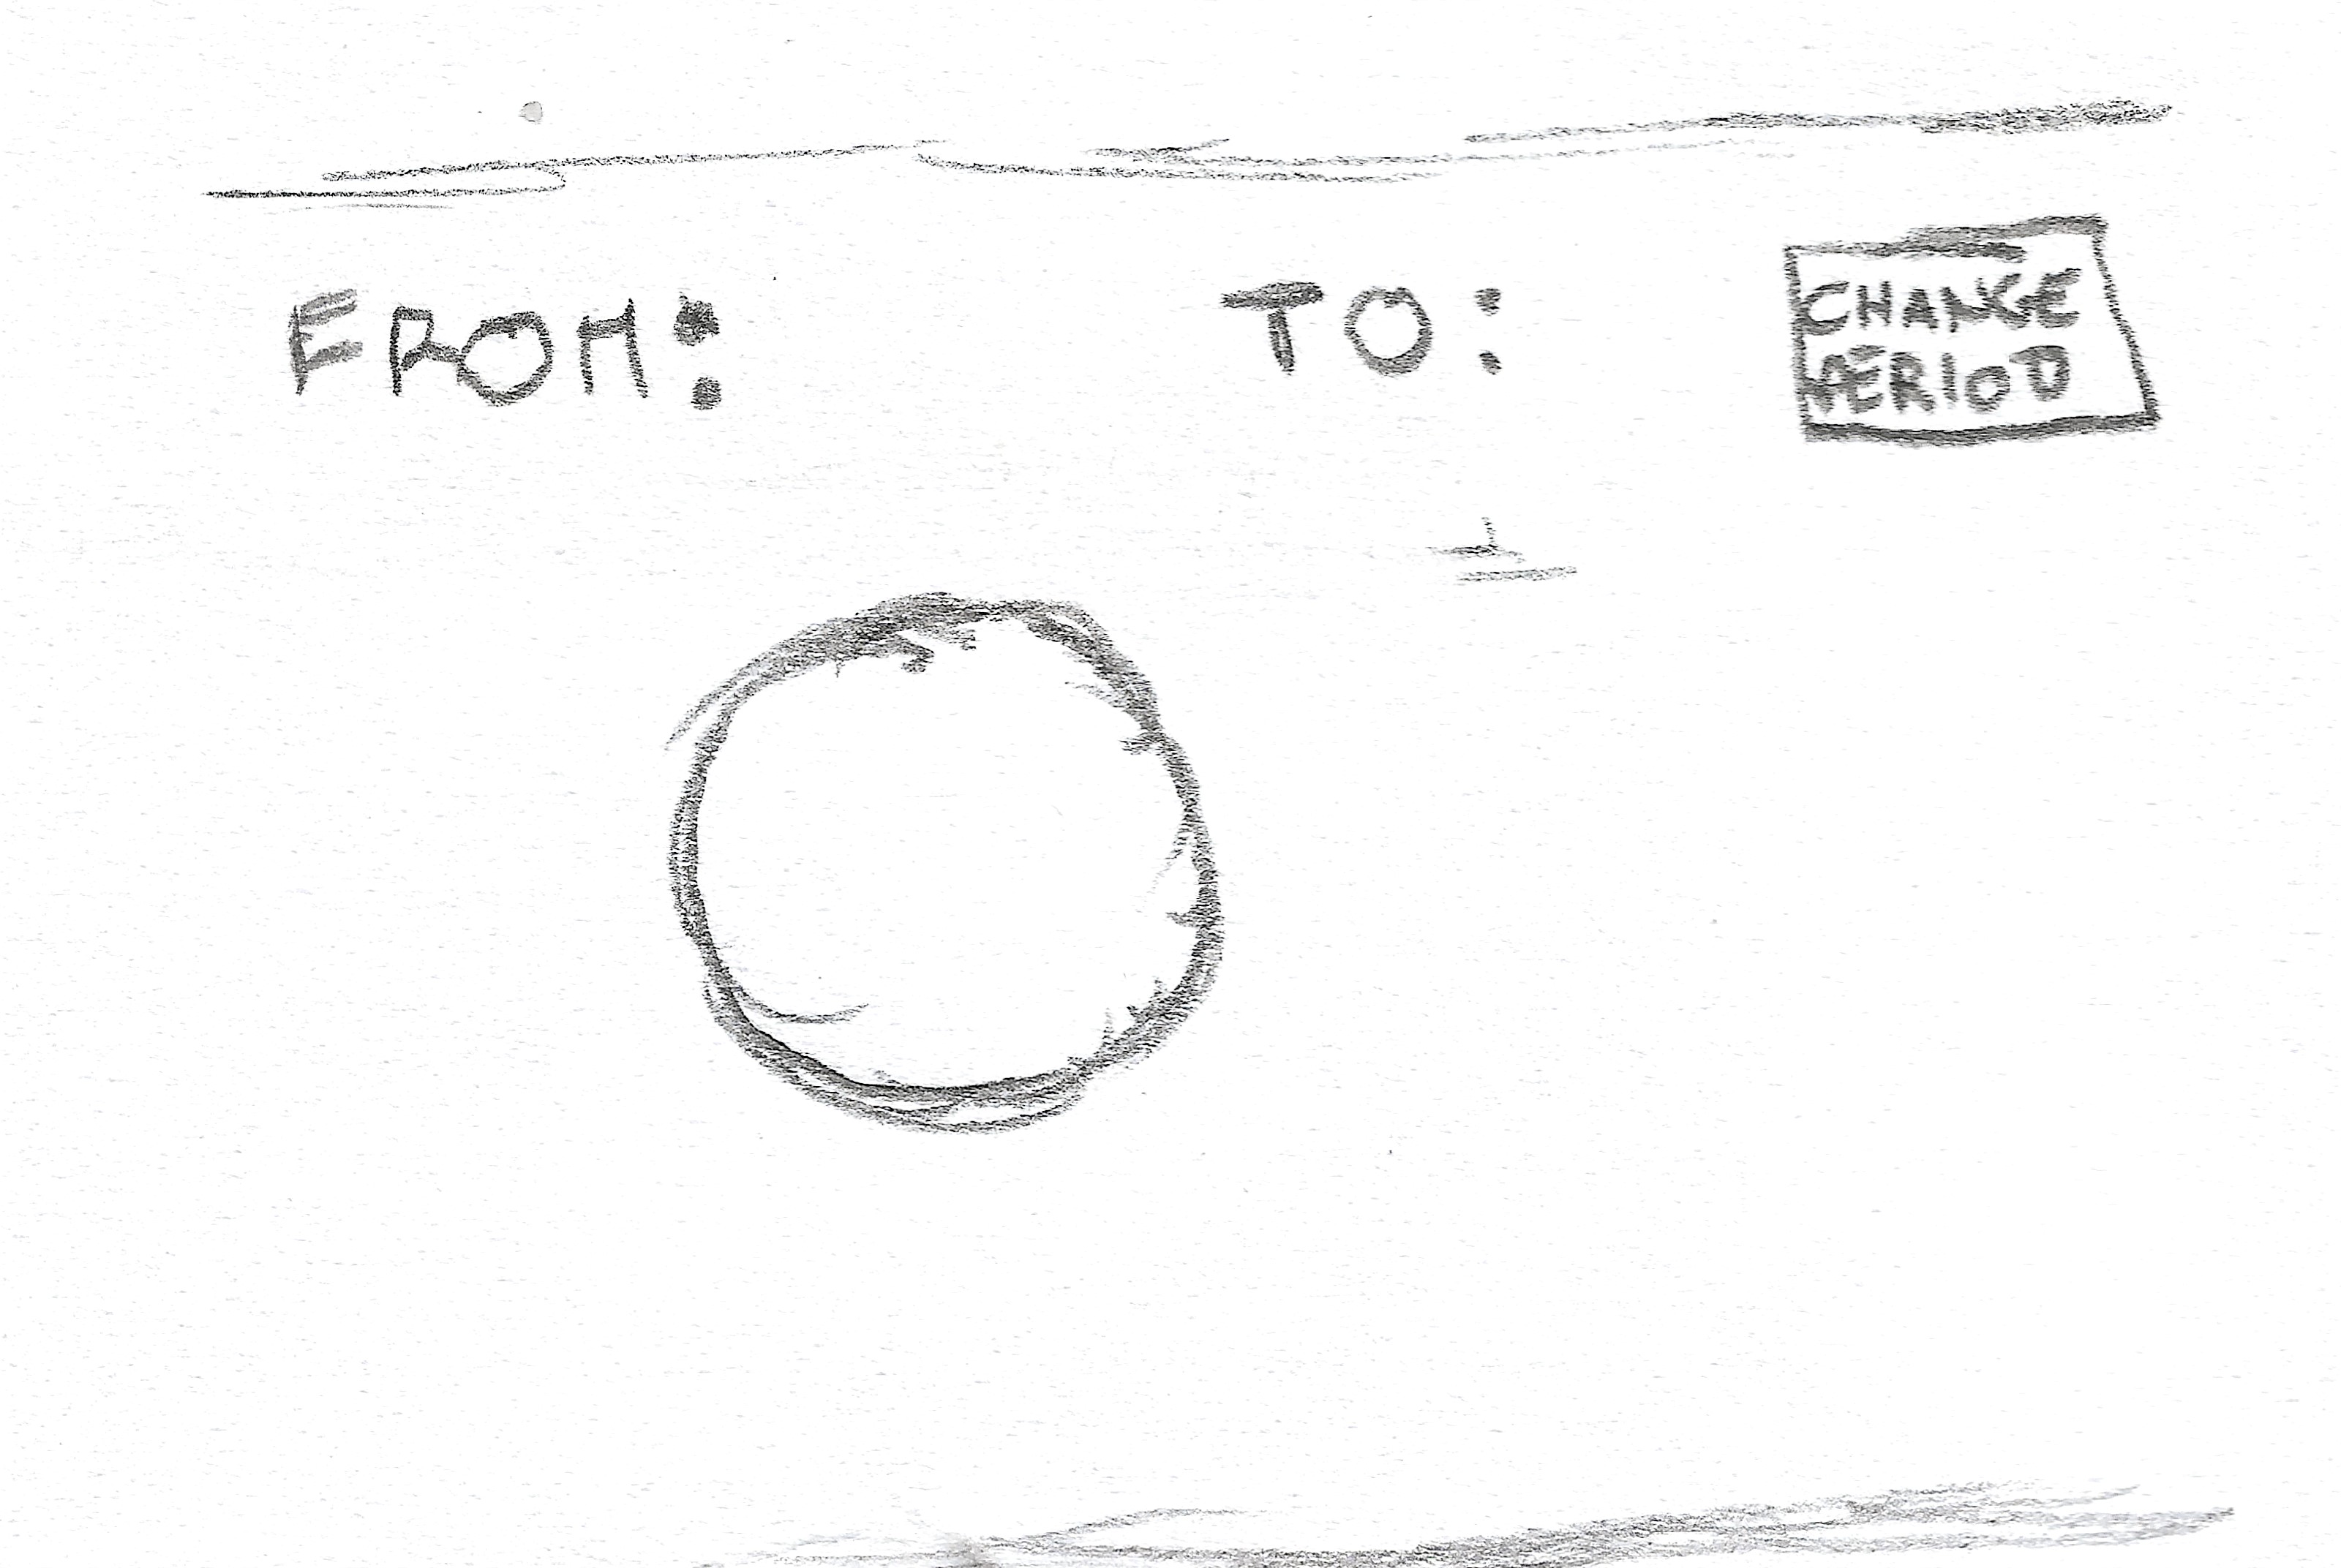 FROM:
TO:
CHANGE
PERIOD